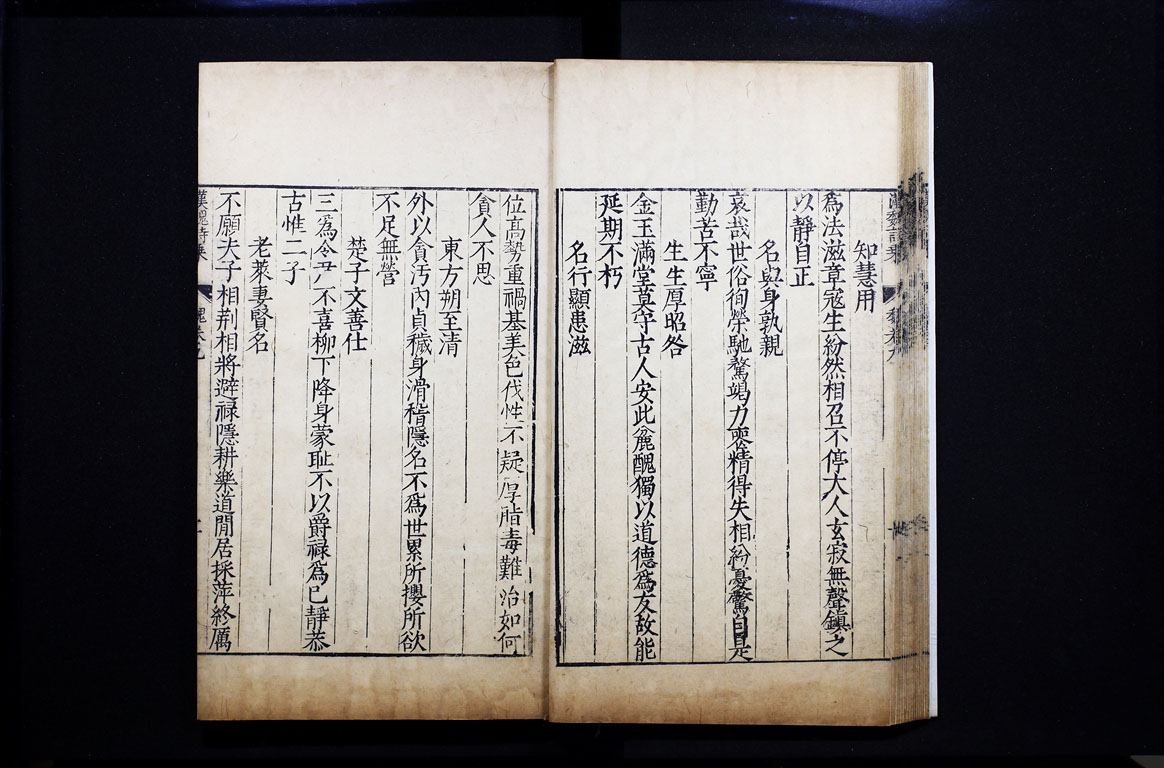 知慧用
為法滋章寇生紛然相召不停大人玄寂無聲鎮之
以靜自正
名與身孰親
哀哉世俗徇榮馳騖竭力喪精得失相紛憂驚自是
勤苦不寧
生生厚招咎
金玉滿堂莫守古人安此麄醜獨以道德為友故能
延期不朽
名行顯患滋
位高勢重禍基美色伐性不疑厚脂毒難治如何
貪人不思
東方朔至清
外以貪汚內貞穢身滑稽隱名不為世累所攖所欲
不足無營
楚子文善仕
三為令尹不喜柳下降身蒙耻不以爵祿為巳靜恭
古惟二子
老萊妻賢名
不願夫子相荆相將避祿隱耕樂道閒居採萍終厲
漢魏詩乘
魏卷九